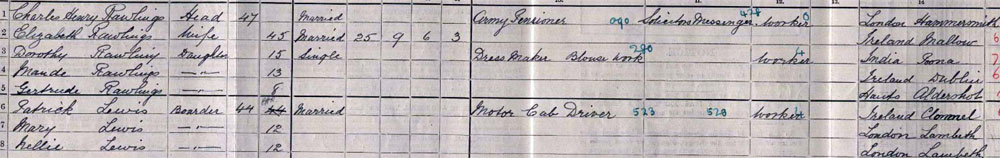 1 Charles Henry Rawlings Head 47 Married Army Pensioner 090 Solicitors Messenger Worker 0 London Hammersmith
2 Elizabeth Rawlings Wife 45 Married 25 9 6 3 Ireland Mallow 6
3 Dorothy Rawlings Daughter 15 Single Dress Maker Blouse Work 290 Worker India Poona 2
4 Maude Rawlings —"— 13 Ireland Dublin 6
5 Gertrude Rawlings —"— 8 Hants Aldershot
6 Patrick Lewis Boarder 44 Married Motor Cab Driver 523 520 Worker Ireland Clonmel
7 Mary Lewis —"— 12 London Lambeth
8 Nellie Lewis —"— 12 London Lambeth